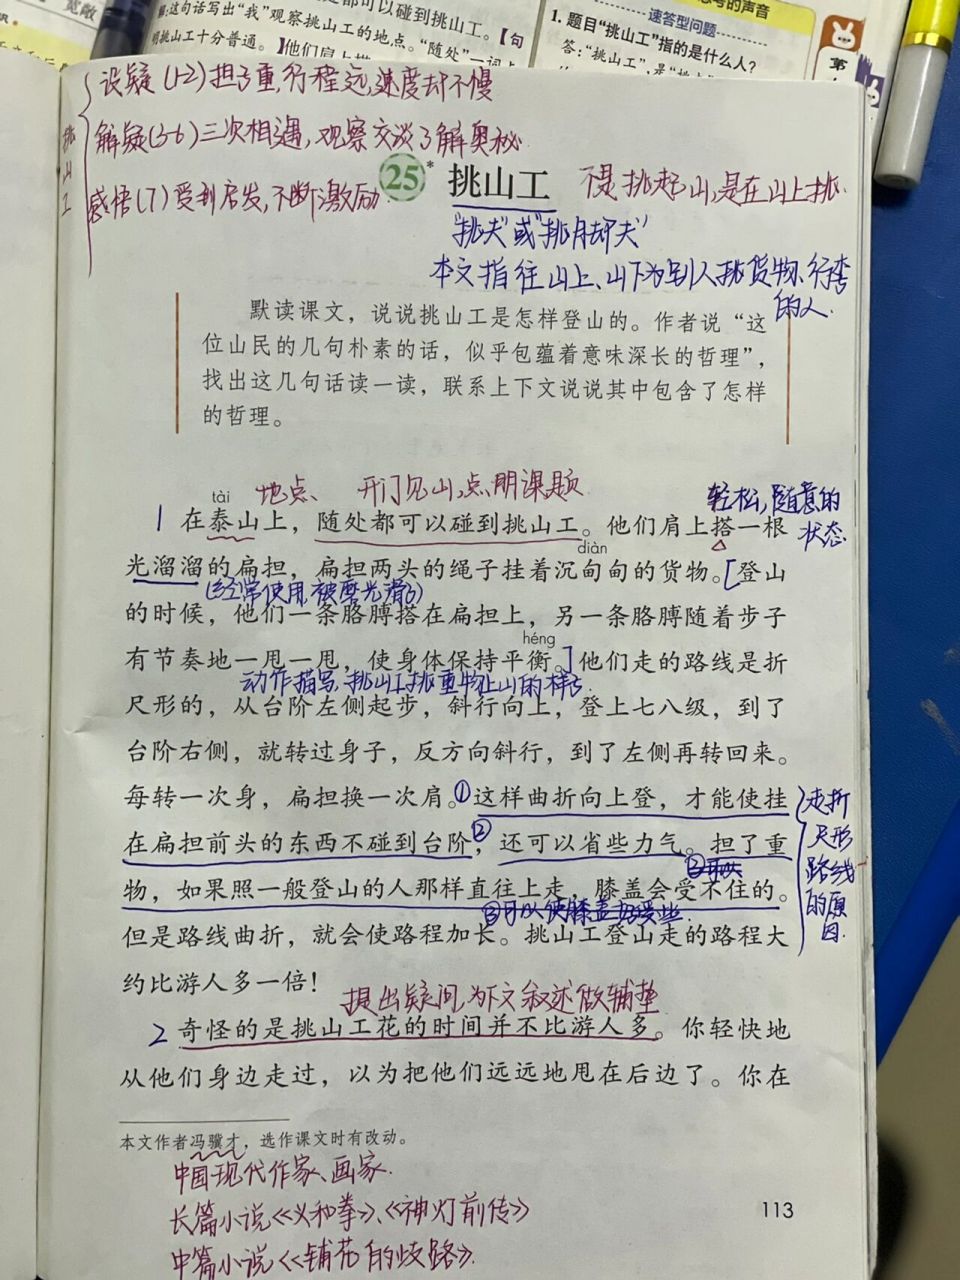 解:这句话写出“我”观察挑山工的地点。“随处”一词
明挑山工十分普通。】他们肩上
都可以碰到挑山工。【句
速答型问题
1. 题目“挑山工”指的是什么人?
设疑(1-2)担子重,行程远,速度却不慢
解疑(3-6)三次相遇,观察交谈了解奥秘
感悟(7)受到启发,不断激励
挑山工
25* 挑山工
不是挑起山,是在山上挑.
“挑夫”或“挑脚夫”
本文指往山上、山下为别人挑货物、行李
的人.
默读课文,说说挑山工是怎样登山的。作者说“这
位山民的几句朴素的话,似乎包蕴着意味深长的哲理”,
找出这几句话读一读,联系上下文说说其中包含了怎样
的哲理。
地点、 开门见山,点明课题
轻松,随意的
状态
tài
1 在泰山上,随处都可以碰到挑山工。他们肩上搭一根
diàn
光溜溜的扁担,扁担两头的绳子挂着沉甸甸的货物。[登山
(经常使用被磨光滑了)
的时候,他们一条胳膊搭在扁担上,另一条胳膊随着步子
héng
有节奏地一甩一甩,使身体保持平衡。]他们走的路线是折
动作描写,挑山工挑重物让山的样子.
尺形的,从台阶左侧起步,斜行向上,登上七八级,到了
台阶右侧,就转过身子,反方向斜行,到了左侧再转回来。
每转一次身,扁担换一次肩。①这样曲折向上登,才能使挂
在扁担前头的东西不碰到台阶②,还可以省些力气。担了重
物,如果照一般登山的人那样直往上走,膝盖会受不住的。
③可以使膝盖好受些.
走折
尺形
路线
的原
因.
但是路线曲折,就会使路程加长。挑山工登山走的路程大
约比游人多一倍!
提出疑问,为下文叙述做铺垫
2 奇怪的是挑山工花的时间并不比游人多。你轻快地
从他们身边走过,以为把他们远远地甩在后边了。你在
本文作者冯骥才,选作课文时有改动。
中国现代作家、画家.
长篇小说《义和拳》、《神灯前传》
中篇小说《铺花的歧路》
113